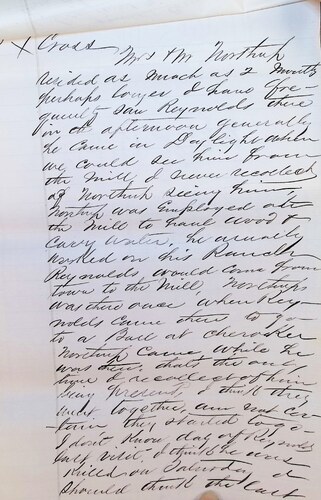 X Cross
Mrs & Mr Northup
resided as much as 2 Months
perhaps longer I have fre-
quently saw Reynolds there
in the afternoon generally
he came in Daylight when
we could see him from
the Mill, I never recollect
of Northup seeing him,
Northup was Employed at
the Mill to haul wood &
carry water, he usually
worked on his Ranch
Reynolds would come from
town to the Mill, Northup
was there once when Rey-
nolds came there to go
to a Ball at Cherokee
Northup came while he
was there, that's the only
time I recollect of him
being present, I think they
went together, am not cer-
tain they started to go
I don't know day of Reynolds
last visit, I think he was
killed on Saturday I
should think the last